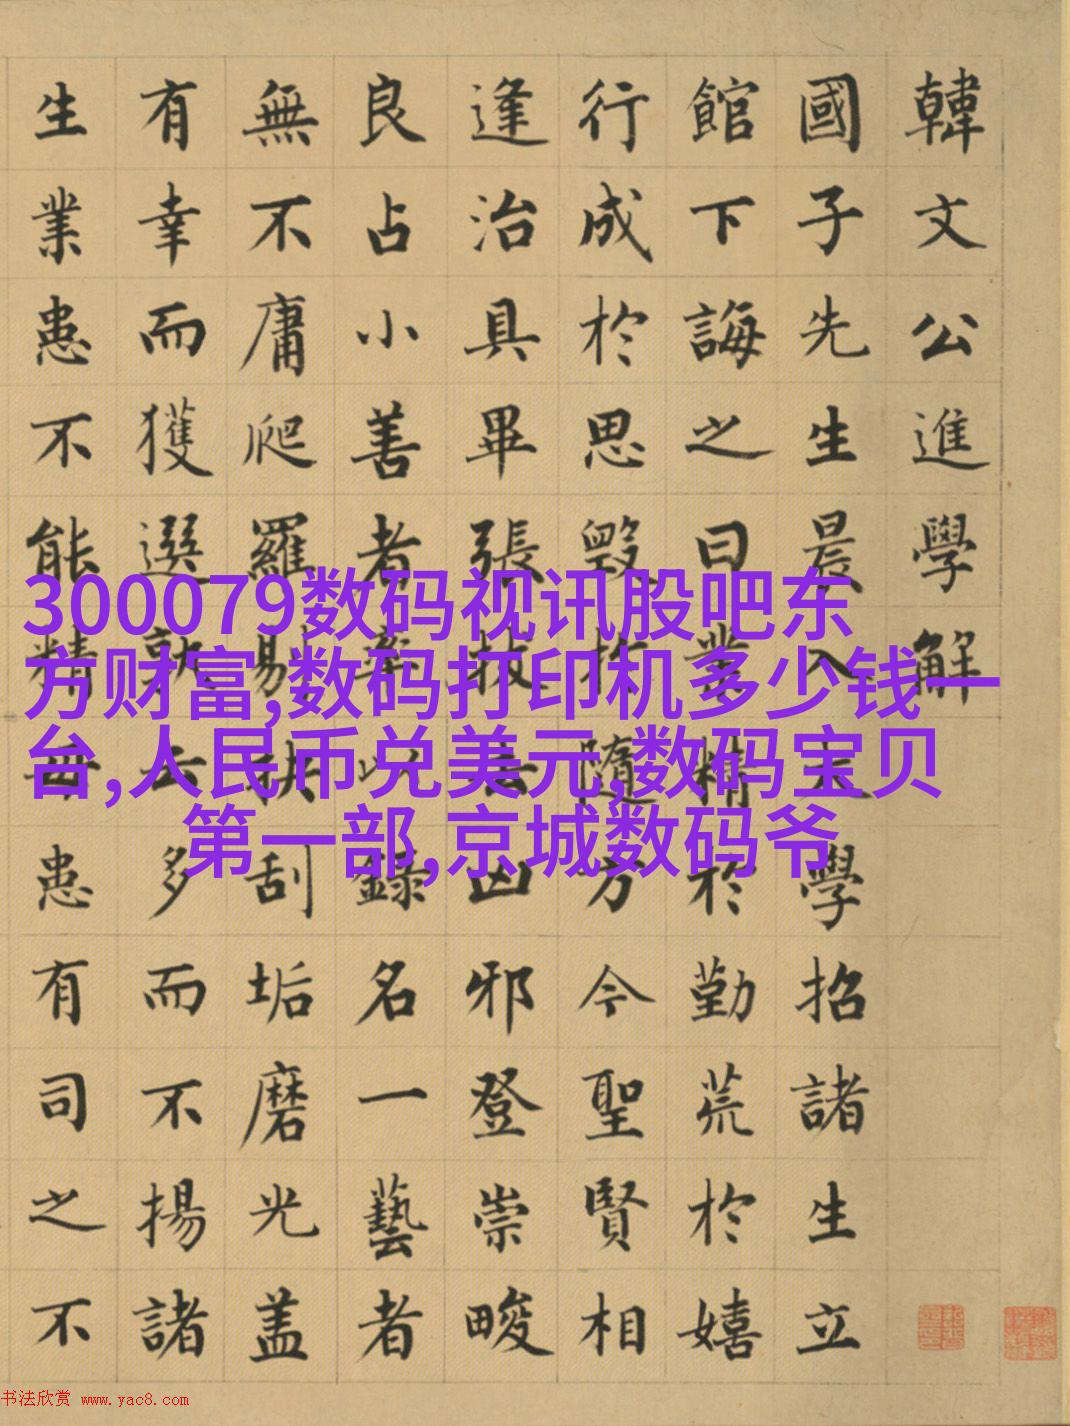 韓文公進學解
國子先生晨入太學招諸生立
館下誨之曰業精於勤荒於嬉
行成於思毀於隨方今聖賢相
逢治具畢張拔去凶邪登崇畯
良占小善者率以錄名一藝者
無不庸爬羅剔抉刮垢磨光盖
有幸而獲選孰云多而不揚諸
生業患不能精毋患有司之不
300079数码视讯股吧东
方财富,数码打印机多少钱一
台,人民币兑美元,数码宝贝
第一部,京城数码爷
书法欣赏 www.yac8.com